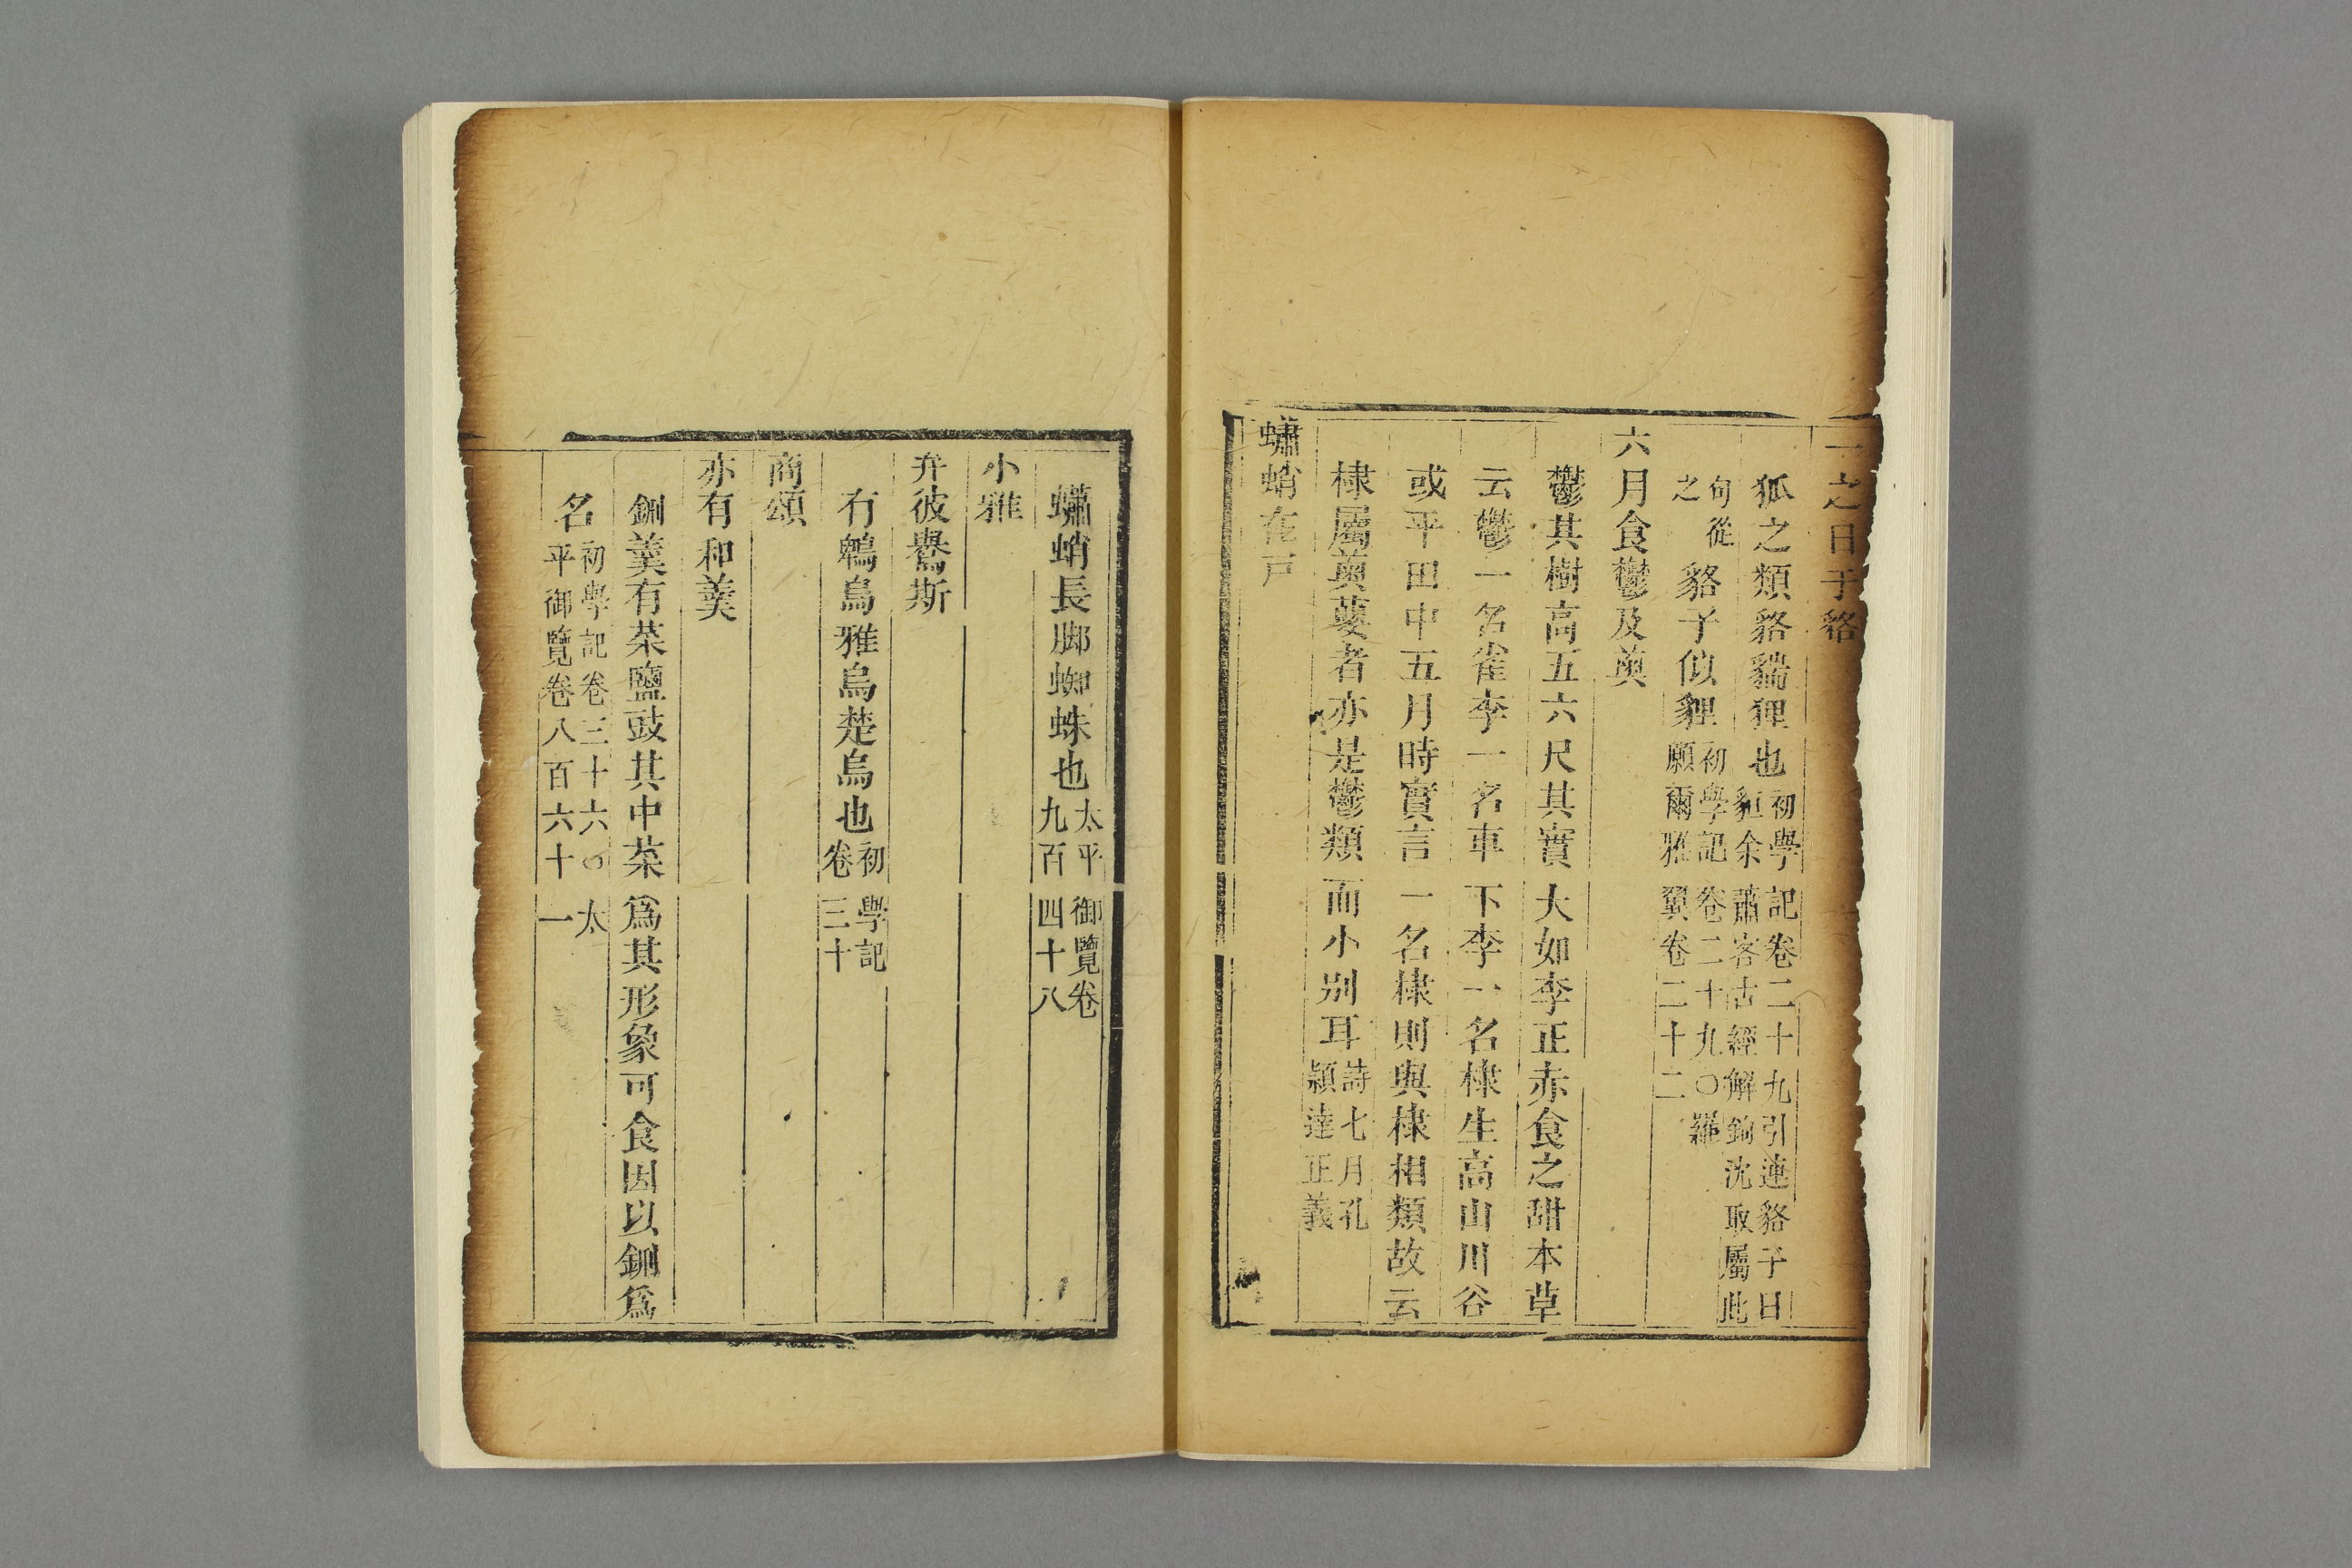 一之日于貉
狐之類貉貒狸也初學記卷二十九引連貉子曰貆余蕭客古經解鉤沈取屬此
句從之貉子似貍初學記卷二十九〇羅願爾雅翼卷二十二
六月食鬱及薁
鬱其樹高五六尺其實大如李正赤食之甜本草
云鬱一名雀李一名車下李一名棣生高山川谷
或平田中五月時實言一名棣則與棣相類故云
棣屬薁蘡者亦是鬱類而小別耳詩七月孔穎達正義
蠨蛸在戸
蠨蛸長脚蜘蛛也太平御覽卷九百四十八
小雅
弁彼鸒斯
冇鵯烏雅烏楚烏也初學記卷三十
商頌
亦有和羹
鉶羹有菜鹽豉其中菜爲其形象可食因以鉶爲
名初學記卷三十六〇太平御覽卷八百六十一